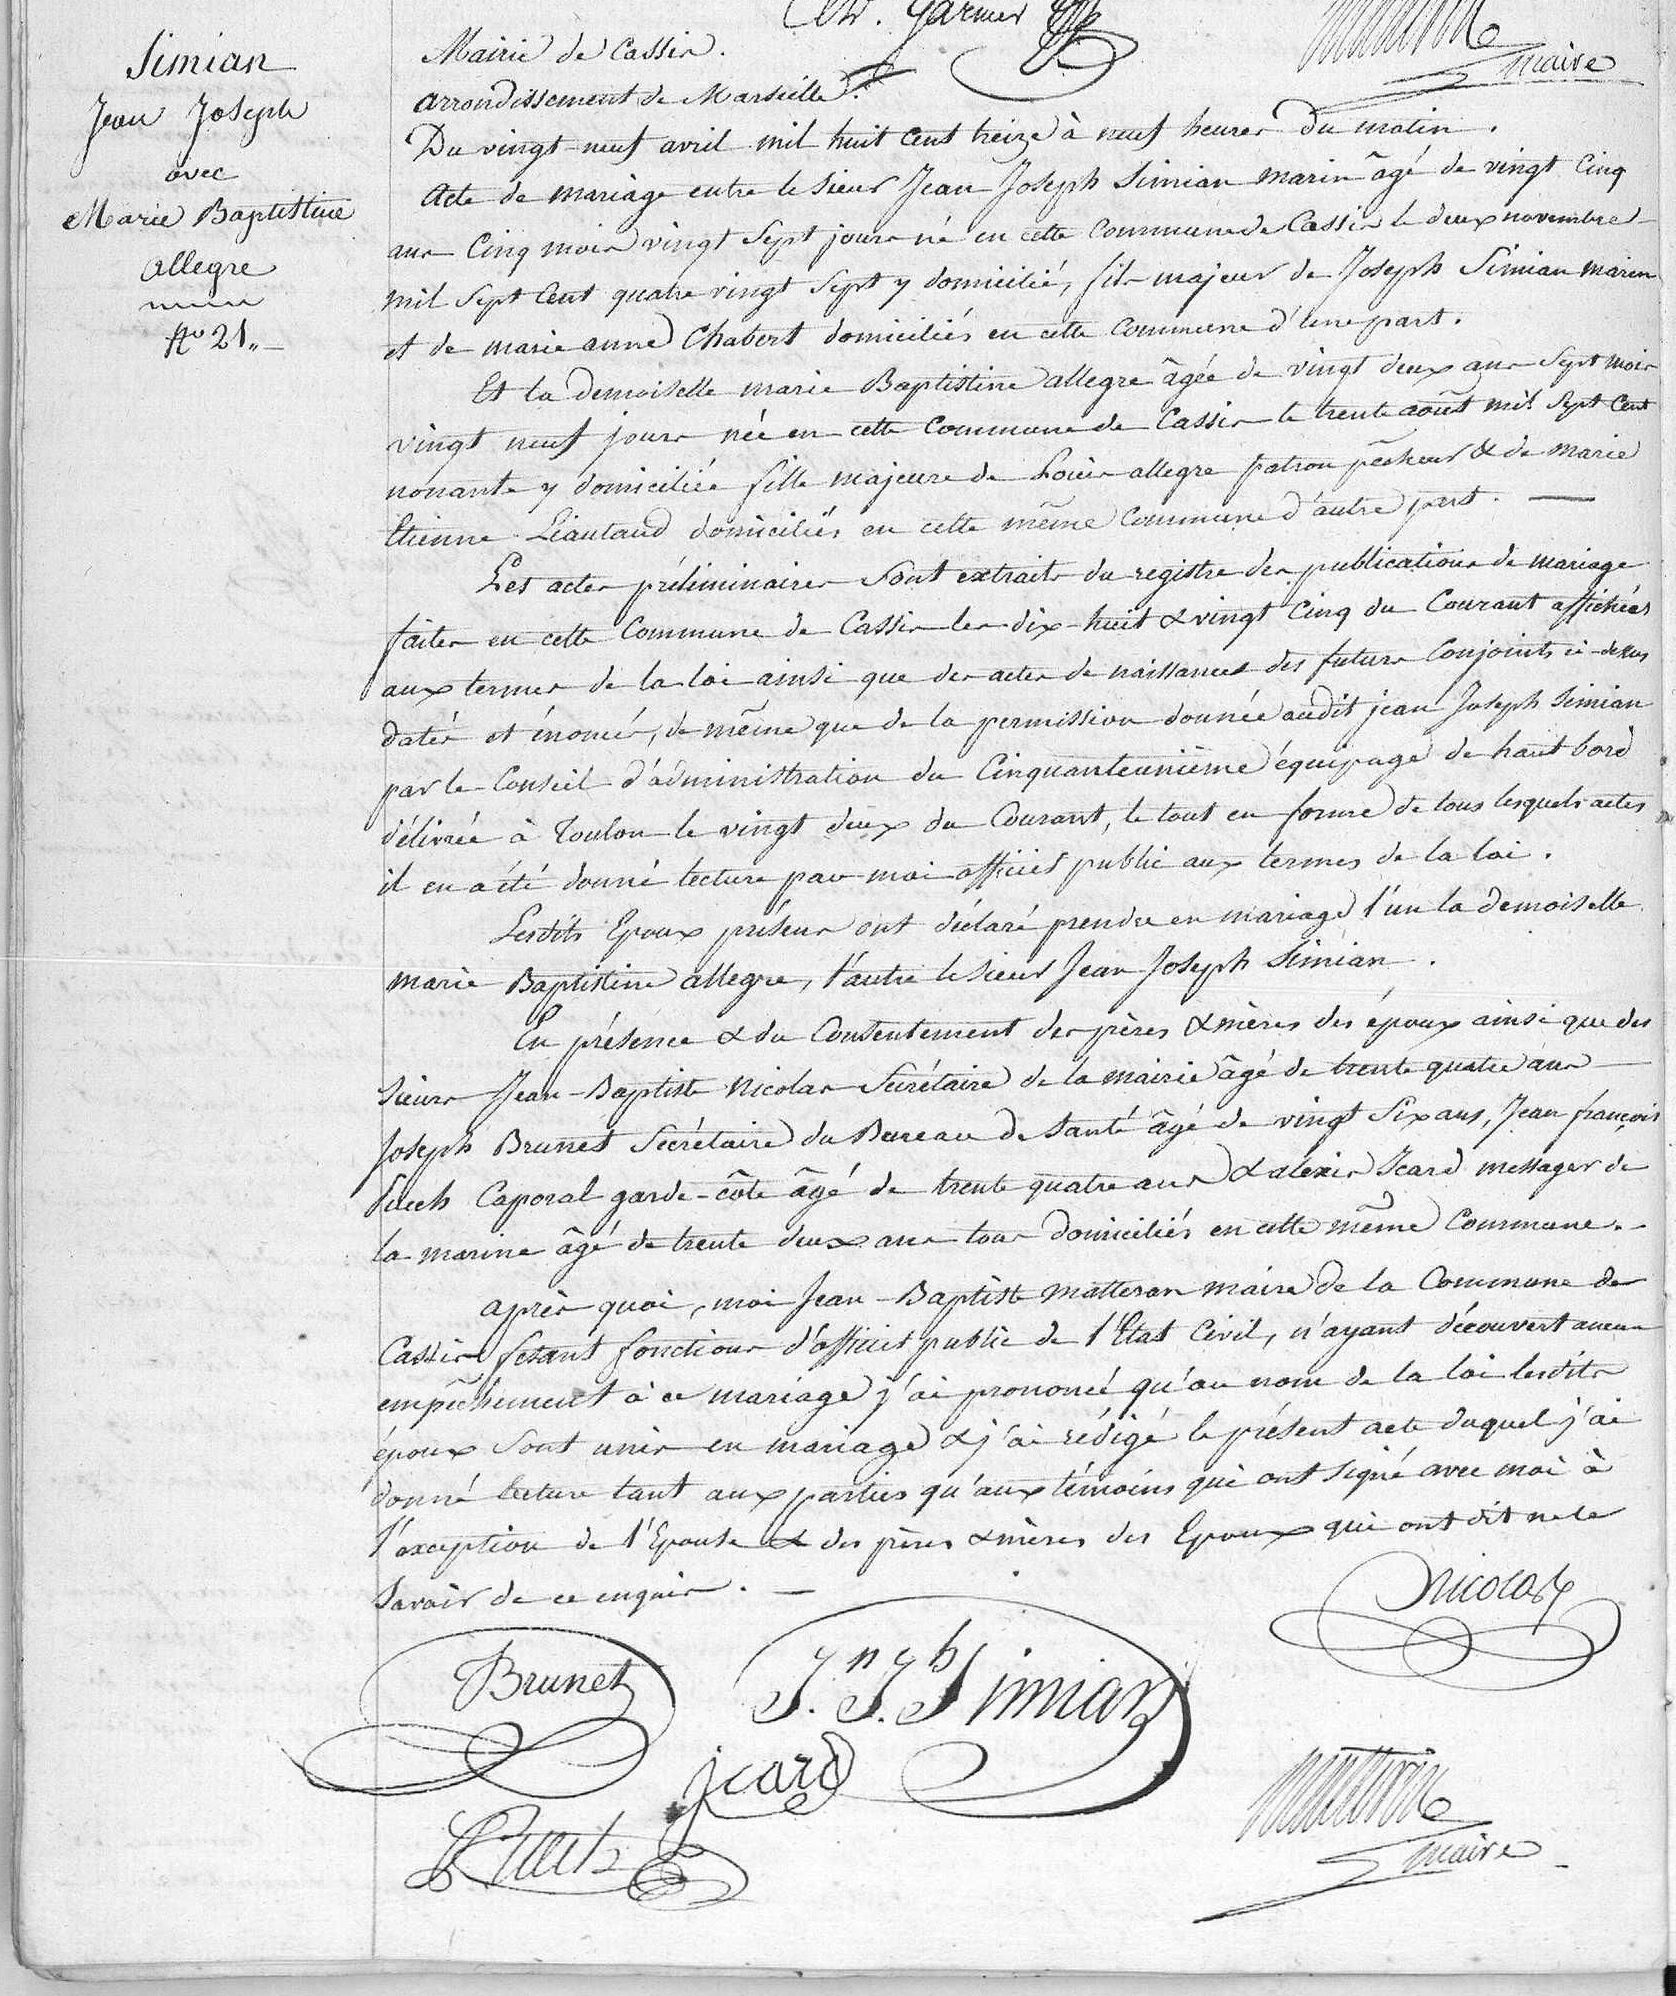 Garnier
maire
Simian
Jean Joseph
avec
Marie Baptistine
allegre
No 21
Mairie de Cassis.
arrondissement de Marseille.
Du vingt-neuf avril mil huit cent treize à neuf heures du matin.
Acte de mariage entre le sieur Jean Joseph Simian marin âgé de vingt cinq
ans cinq mois vingt sept jours né en cette commune de Cassis le deux novembre
mil sept cent quatre vingt sept y domicilié, fils majeur de Joseph Simian marin
et de marie anne Chabert domiciliés en cette commune d'une part.
Et la demoiselle marie Baptistine allegre âgée de vingt deux ans sept mois
vingt neuf jours née en cette commune de Cassis le trente août mil sept cent
nonante y domiciliée fille majeure de Louis allegre patron pêcheur & de marie
Etienne Liautaud domiciliés en cette même commune d'autre part.
Les actes préliminaires sont extraits du registre des publications de mariage
faites en cette commune de Cassis les dix-huit & vingt cinq du courant affichées
aux termes de la loi ainsi que des actes de naissances des futurs conjoints ci-dessus
datés et énoncés, de même que de la permission donnée audit jean Joseph Simian
par le Conseil d'administration du Cinquanteunième équipage de haut bord
délivrée à Toulon le vingt deux du Courant, le tout en forme de tous lesquels actes
il en a été donné lecture par moi officier public aux termes de la loi.
Lesdits Epoux présens ont déclaré prendre en mariage l'un la demoiselle
marie Baptistine allegre, l'autre le sieur Jean Joseph Simian.
En présence & du Consentement des pères & mères des époux ainsi que des
sieurs Jean-Baptiste Nicolas Secrétaire de la mairie âgé de trente quatre ans
Joseph Brunet Secrétaire du Bureau de santé âgé de vingt six ans, Jean françois
Caporal garde-côte âgé de trente quatre ans & alexis Icard messager de
la marine âgé de trente deux ans tous domiciliés en cette même Commune.
après quoi, moi Jean-Baptiste matteron maire de la Commune de
Cassis fesant fonctions d'officier public de l'Etat Civil, n'ayant découvert aucun
empêchement à ce mariage j'ai prononcé qu'au nom de la loi lesdits
époux sont unis en mariage & j'ai rédigé le présent acte duquel j'ai
donné lecture tant aux parties qu'aux témoins qui ont signé avec moi à
l'exception de l'Epouse & des pères & mères des Epoux qui ont dit ne le
savoir de ce enquis.
Nicolas
Brunet
J.n J.h Simian
jcard
matteron
maire